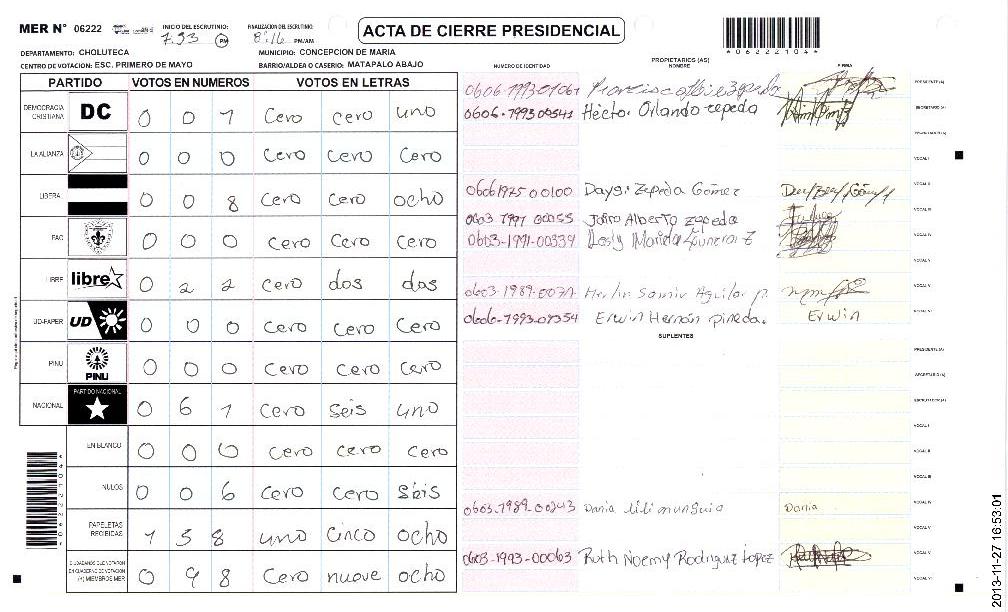 MER N° 06222
INICIO DEL ESCRUTINIO:
7:53 PM
FINALIZACION DEL ESCRUTINIO:
8:16 PM/AM
ACTA DE CIERRE PRESIDENCIAL
*06222104*
DEPARTAMENTO: CHOLUTECA
MUNICIPIO: CONCEPCION DE MARIA
CENTRO DE VOTACION: ESC. PRIMERO DE MAYO
BARRIO/ALDEA O CASERIO: MATAPALO ABAJO
PARTIDO VOTOS EN NUMEROS VOTOS EN LETRAS
DEMOCRACIA CRISTIANA DC 0 0 1 Cero cero uno
LA ALIANZA 0 0 0 Cero Cero Cero
LIBERAL 0 0 8 Cero Cero ocho
PAC 0 0 0 Cero Cero Cero
LIBRE libre 0 2 2 Cero dos dos
UD-FAPER UD 0 0 0 Cero Cero Cero
PINU PINU 0 0 0 Cero Cero Cero
NACIONAL PARTIDO NACIONAL 0 6 1 Cero seis uno
EN BLANCO 0 0 0 Cero cero cero
NULOS 0 0 6 Cero Cero Seis
PAPELETAS RECIBIDAS 1 5 8 uno Cinco ocho
CIUDADANOS QUE VOTARON EN CUADERNO DE VOTACION (+) MIEMBROS MER 0 9 8 Cero nueve ocho
PROPIETARIOS (AS)
NUMERO DE IDENTIDAD NOMBRE FIRMA
PRESIDENTE (A)
0606-1993-00541 Héctor Orlando zepeda SECRETARIO (A)
VOCAL I
0606 1975 00100 Daysi Zepeda Gómez VOCAL II
0603 1991 00055 Jairo Alberto Zepeda VOCAL III
0603-1991-00339 VOCAL IV
VOCAL V
Aguilar p.
0606-1993-01354 Erwin Hernán pineda. Erwin
SUPLENTES
PRESIDENTE (A)
SECRETARIO (A)
ESCRUTADOR (A)
VOCAL I
VOCAL II
VOCAL III
0603-1989-00243 Dania lili munguia Dania VOCAL IV
VOCAL V
0603-1993-00063 Ruth Noemy Rodriguez Lopez
2013-11-27 16:53:01